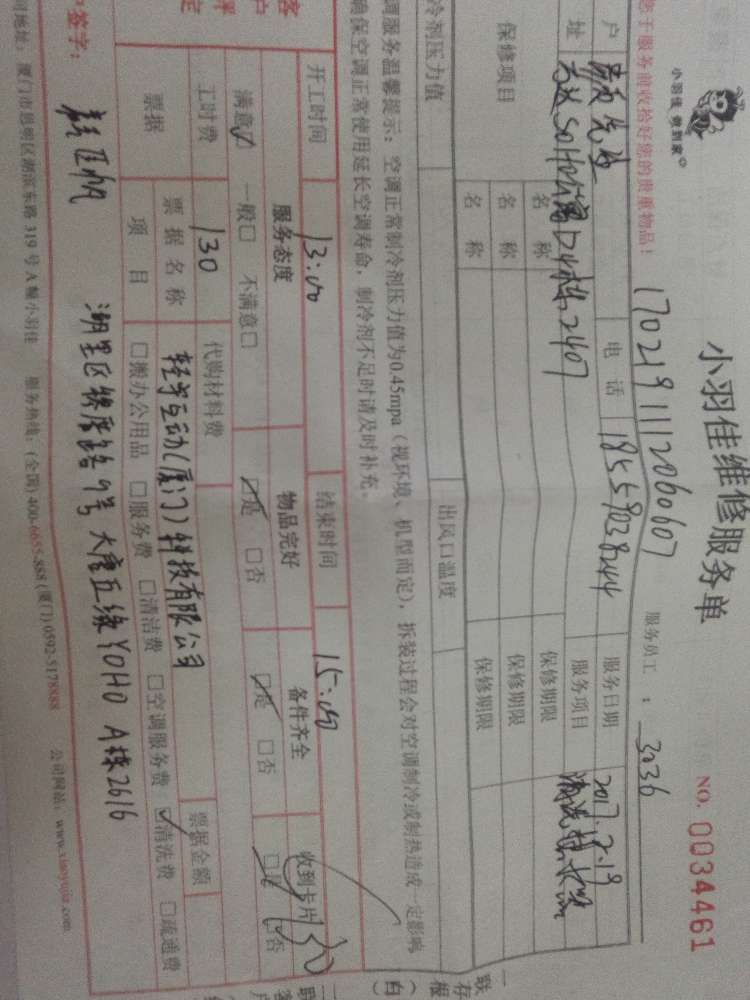 小羽佳 做到家
小羽佳维修服务单
NO. 0034461
您于服务前收拾好您的贵重物品!
1702191112060607
服务员工 : 3036
户
电话 18559038244
服务日期 2017.2.19
址
2407
服务项目
保修项目
名称
保修期限
名称
保修期限
名称
保修期限
冷剂压力值
出风口温度
调服务温馨提示:空调正常制冷剂压力值为0.45mpa(视环境、机型而定),拆装过程会对空调制冷或制热造成一定影响
确保空调正常使用延长空调寿命,制冷剂不足时请及时补充。
开工时间 13:00
结束时间 15:00
服务态度
物品完好
备件齐全
收到卡片
满意☑ 一般□ 不满意□
☑是 □否
☑是 □否
□是 ☑否
工时费 130
代购材料费
130
票据
票据名称
轻竿互动(厦门)科技有限公司
票据金额
项目
□搬办公用品 □服务费 □清洁费 □空调服务费 ☑清洗费 □疏通费
签字:
湖里区
大唐五缘YOHO A栋2616
司地址:厦门市思明区湖滨东路319号A幢小羽佳 服务热线:(全国)400-6655-888(厦门)0592-5178888 公司网站:www.xiaoyujia.com